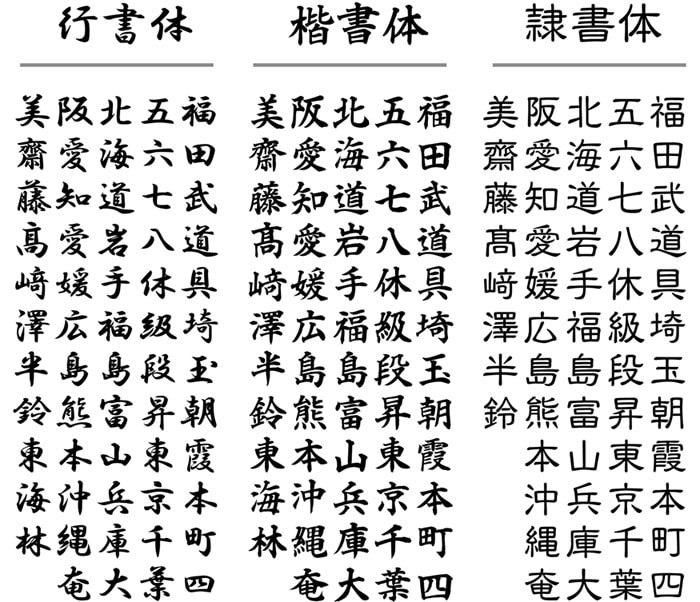 行書体
福田武道具埼玉朝霞本町四
五六七八休級段昇東京千葉
北海道岩手福島富山兵庫大
阪愛知愛媛広島熊本沖縄奄
美齋藤髙﨑澤半鈴東海林
楷書体
福田武道具埼玉朝霞本町四
五六七八休級段昇東京千葉
北海道岩手福島富山兵庫大
阪愛知愛媛広島熊本沖縄奄
美齋藤髙﨑澤半鈴東海林
隷書体
福田武道具埼玉朝霞本町四
五六七八休級段昇東京千葉
北海道岩手福島富山兵庫大
阪愛知愛媛広島熊本沖縄奄
美齋藤髙﨑澤半鈴